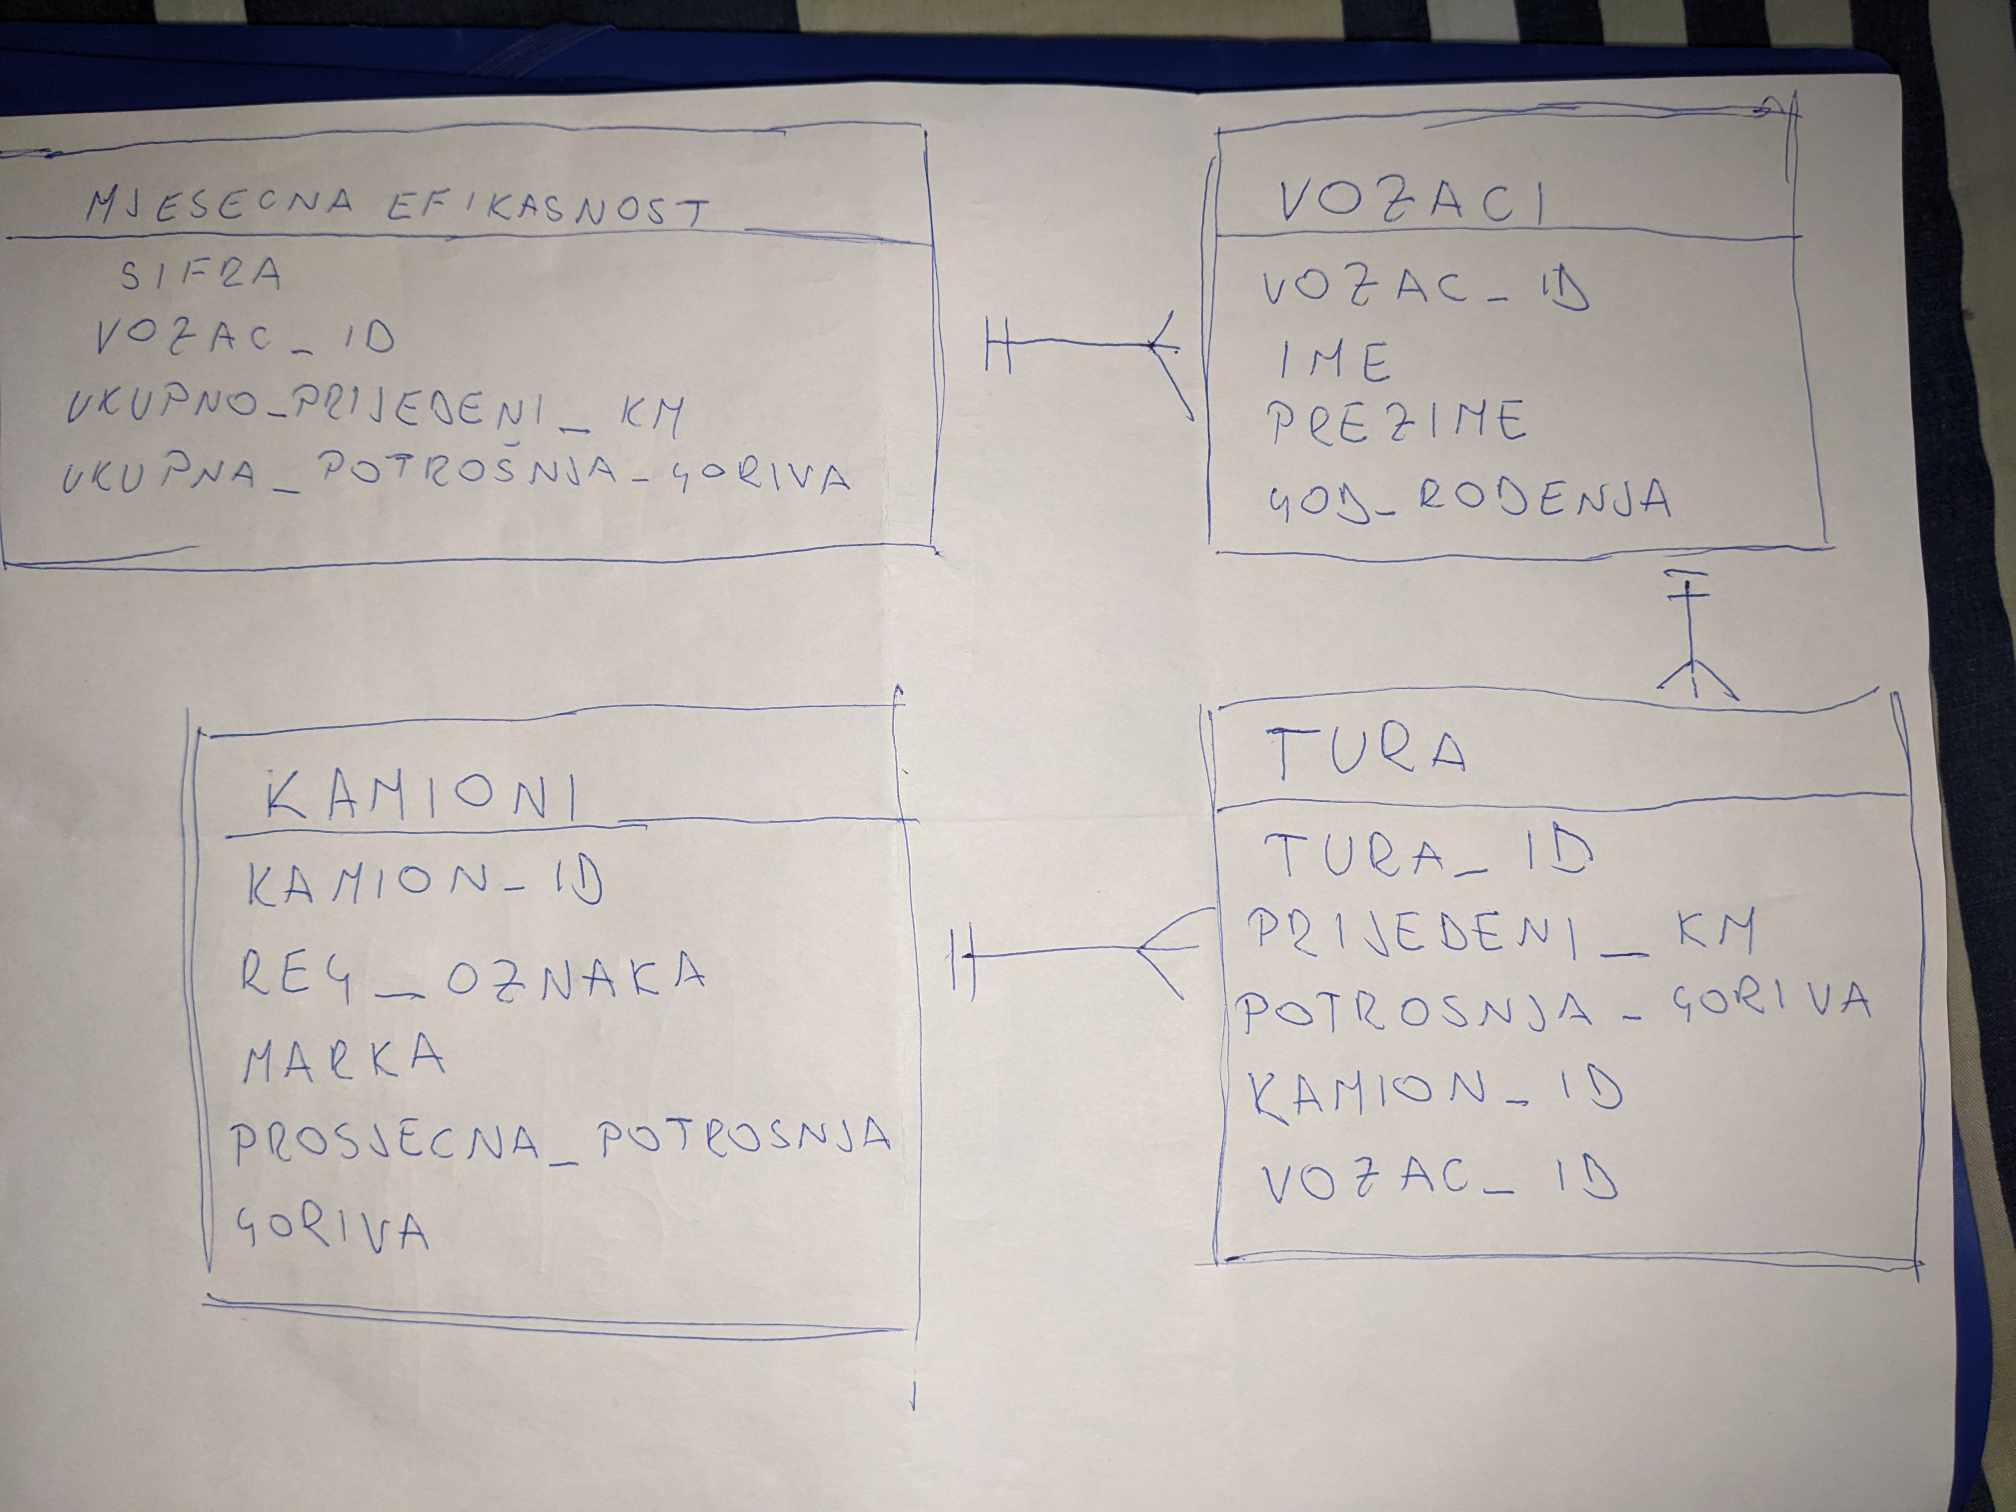 MJESECNA EFIKASNOST
SIFRA
VOZAC_ID
UKUPNO_PRIJEDENI_KM
UKUPNA_POTROŠNJA_GORIVA
VOZACI
VOZAC_ID
IME
PREZIME
GOD_RODENJA
KAMIONI
KAMION_ID
REG_OZNAKA
MARKA
PROSJECNA_POTROSNJA
GORIVA
TURA
TURA_ID
PRIJEDENI_KM
POTROSNJA_GORIVA
KAMION_ID
VOZAC_ID